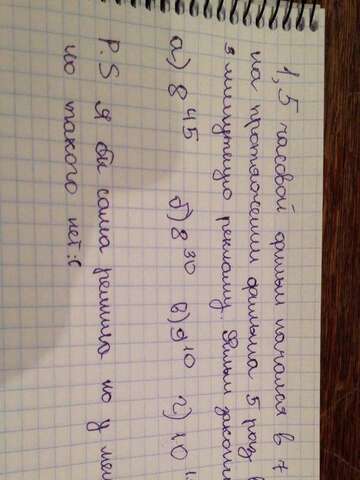 1,5 часовой фильм начался в 7
на протяжении фильма 5 раз
3 минутную рекламу. Фильм закон
а) 8⁴⁵ б) 8³⁰ в) 9¹⁰ г) 10
P.S Я бы сама решила но у ме
но такого нет:(